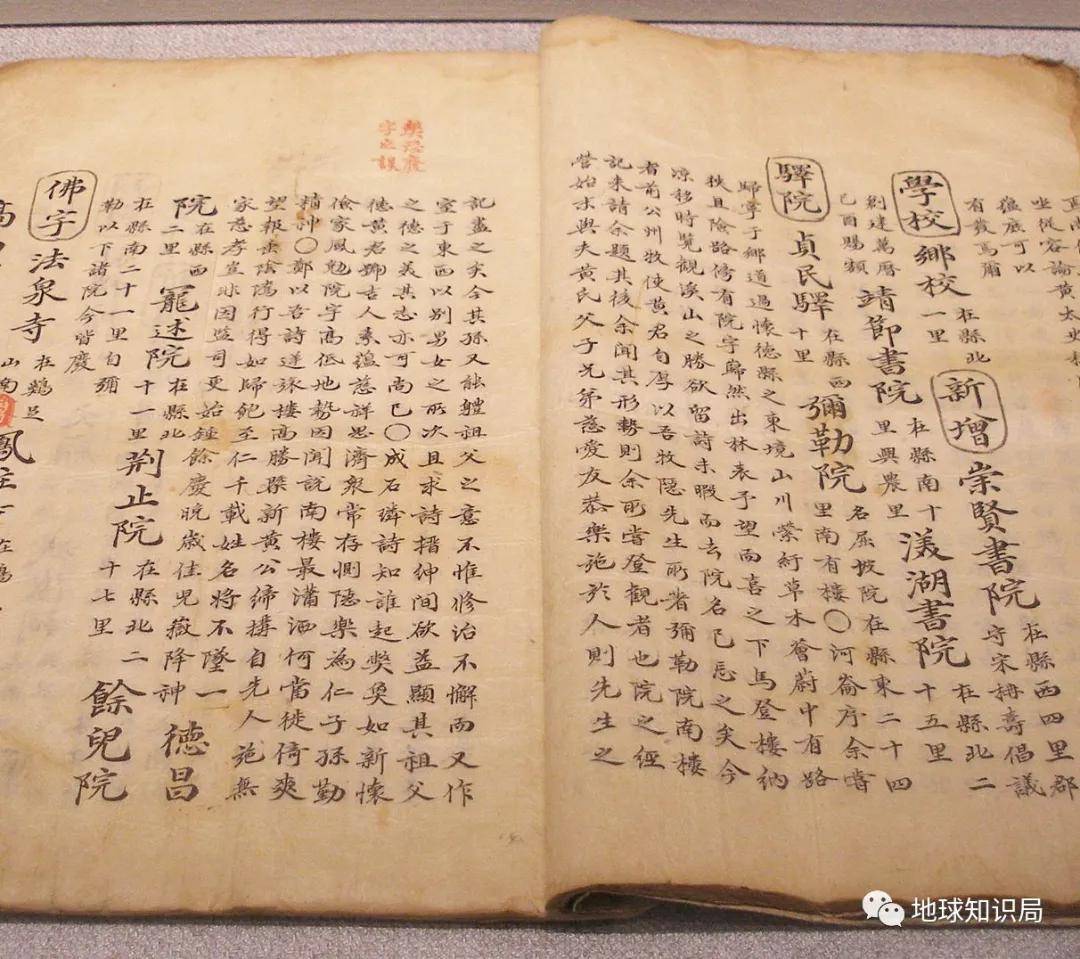 坐從容論黃太史
蘊底可以
有發焉爾
學校 鄉校 在縣北一里 新增 崇賢書院 在縣西四里郡守宋 壽倡議
創建萬曆己酉賜額 靖節書院 在縣南十里興農里 漾湖書院 在縣北二十五里
驛院 貞民驛 在縣西十里 彌勒院 名屈坡院在縣東二十四里南有樓〇河崙序余嘗
歸寧于鄉道過懷德縣之東境山川縈紆草木薈蔚中有路
狹且險路傍有院宇歸然出林表予望而喜之下馬登樓納
凉移時覽觀溪山之勝欲留詩未暇而去院名已忘之矣今
者前公州牧使黃君自厚以吾牧隱先生所著彌勒院南樓
記來請余題其後余聞其形勢則余所嘗登觀者也院之經
營始末與夫黃氏父子兄弟慈愛友恭樂施於人則先生之
獘恐廢
字之誤
記盡之矣今其孫又能軆祖父之意不惟修治不懈而又作
室于東西以别男女之所次且求詩搢紳間欲益顯其祖父
之德之美其志亦可尚已〇成石璘詩知誰起獘奐如新懷
德黃君鄉吉人素蘊慈詳思濟衆常存惻隱樂為仁子孫勤
儉家風勉院宇高低地勢因聞説南樓最瀟洒何當徙倚爽
精神〇鄭以吾詩逆旅樓高勝槩新黃公締構自先人施無
望報長陰隲行得如歸飽至仁千載姓名將不墜一
家慈孝豈殊因監司更始鍾餘慶晚歲佳兒嶽降神 德昌
院 在縣西二里 寵述院 在縣北十一里 荆止院 在縣北二十七里 餘兒院
在縣南二十一里自彌
勒以下諸院今皆廢
佛宇 法泉寺 在鷄足山南 鳳
地球知识局